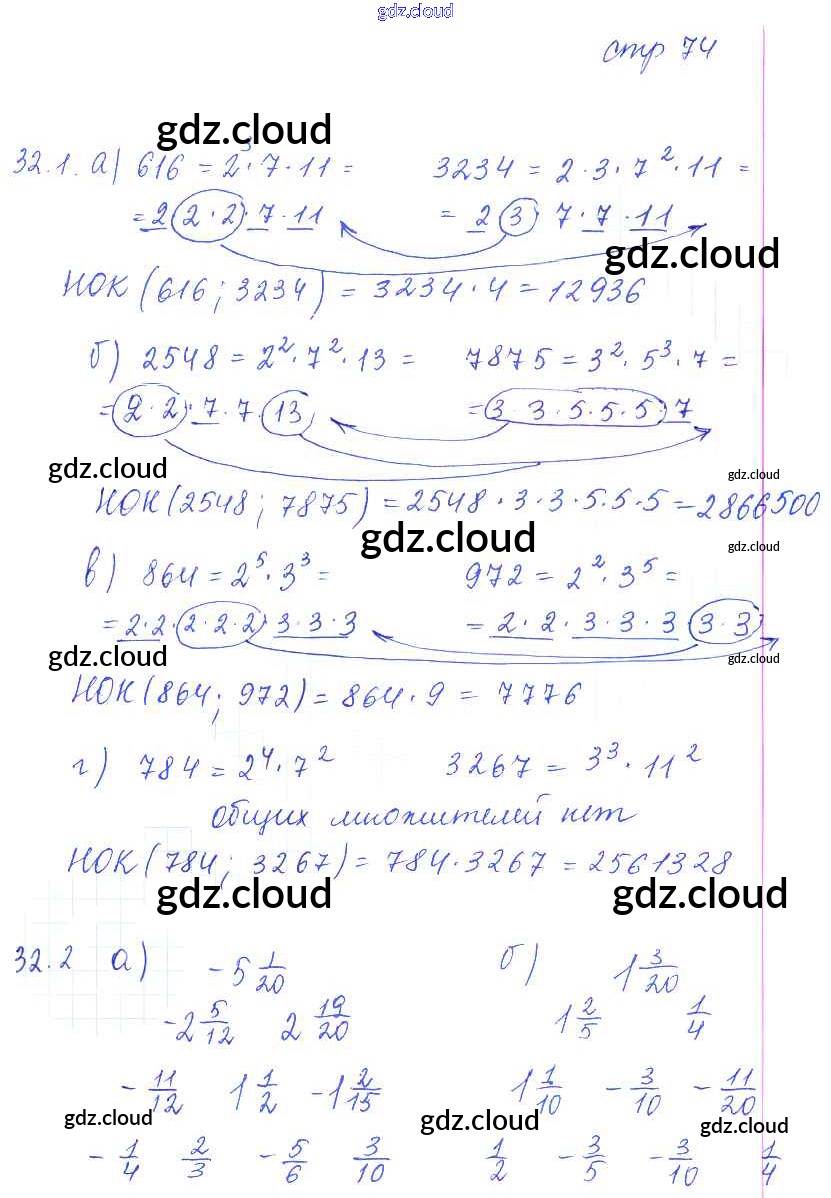 gdz.cloud
стр 74
gdz.cloud
32.1. а) 616 = 2³·7·11 = 3234 = 2·3·7²·11 =
= 2 (2·2)·7·11 = 2 (3) 7·7·11
gdz.cloud
НОК (616; 3234) = 3234·4 = 12936
б) 2548 = 2²·7²·13 = 7875 = 3²·5³·7 =
= (2·2)·7·7·(13) = (3·3·5·5·5)·7
gdz.cloud gdz.cloud
НОК (2548; 7875) = 2548·3·3·5·5·5 = 2866500
gdz.cloud gdz.cloud
в) 864 = 2⁵·3³ = 972 = 2²·3⁵ =
= 2·2·(2·2·2)·3·3·3 = 2·2·3·3·3·(3·3)
gdz.cloud gdz.cloud
НОК (864; 972) = 864·9 = 7776
г) 784 = 2⁴·7² 3267 = 3³·11²
общих множителей нет
НОК (784; 3267) = 784·3267 = 2561328
gdz.cloud gdz.cloud
32.2 а) -5 1/20 б) 1 3/20
-2 5/12 2 19/20 1 2/5 1/4
-11/12 1 1/2 -1 2/15 1 1/10 -3/10 -11/20
gdz.cloud gdz.cloud gdz.cloud
-1/4 2/3 -5/6 3/10 1/2 -3/5 -3/10 1/4